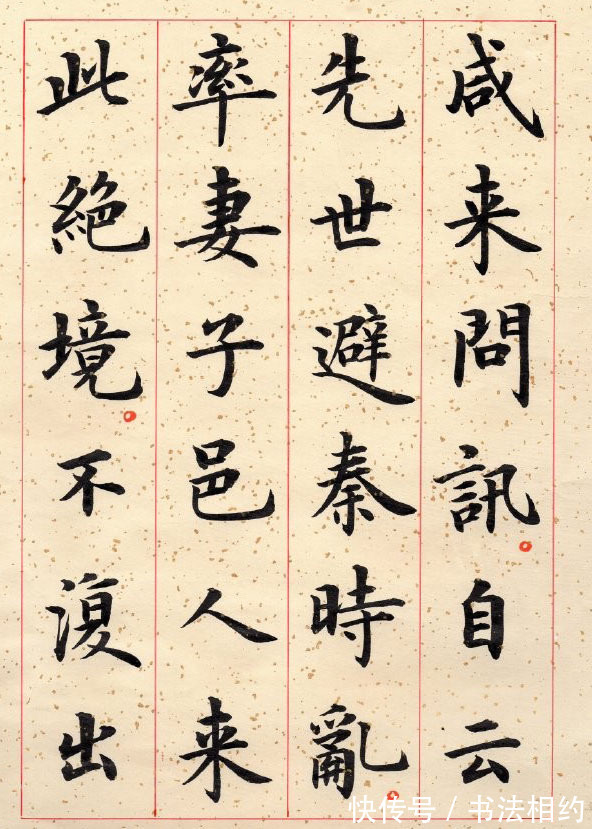 咸来問訊自云
先世避秦時亂
率妻子邑人来
此絕境不復出
快传号 / 书法相约